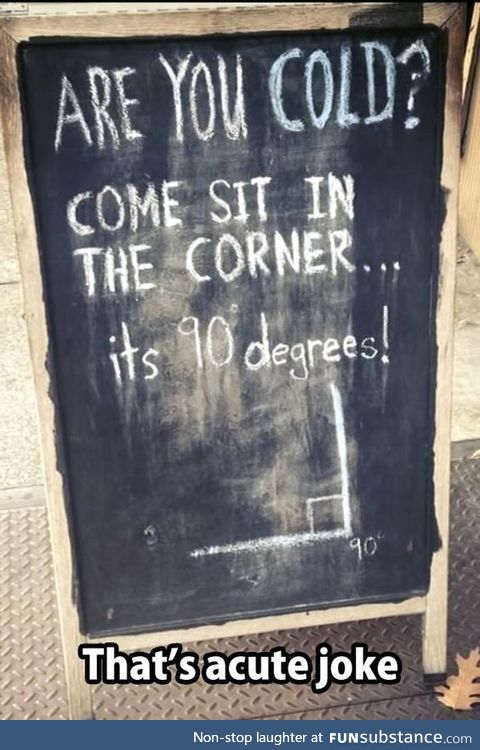 ARE YOU COLD?
COME SIT IN
THE CORNER...
its 90° degrees!
90°
That's acute joke
Non-stop laughter at FUNsubstance.com